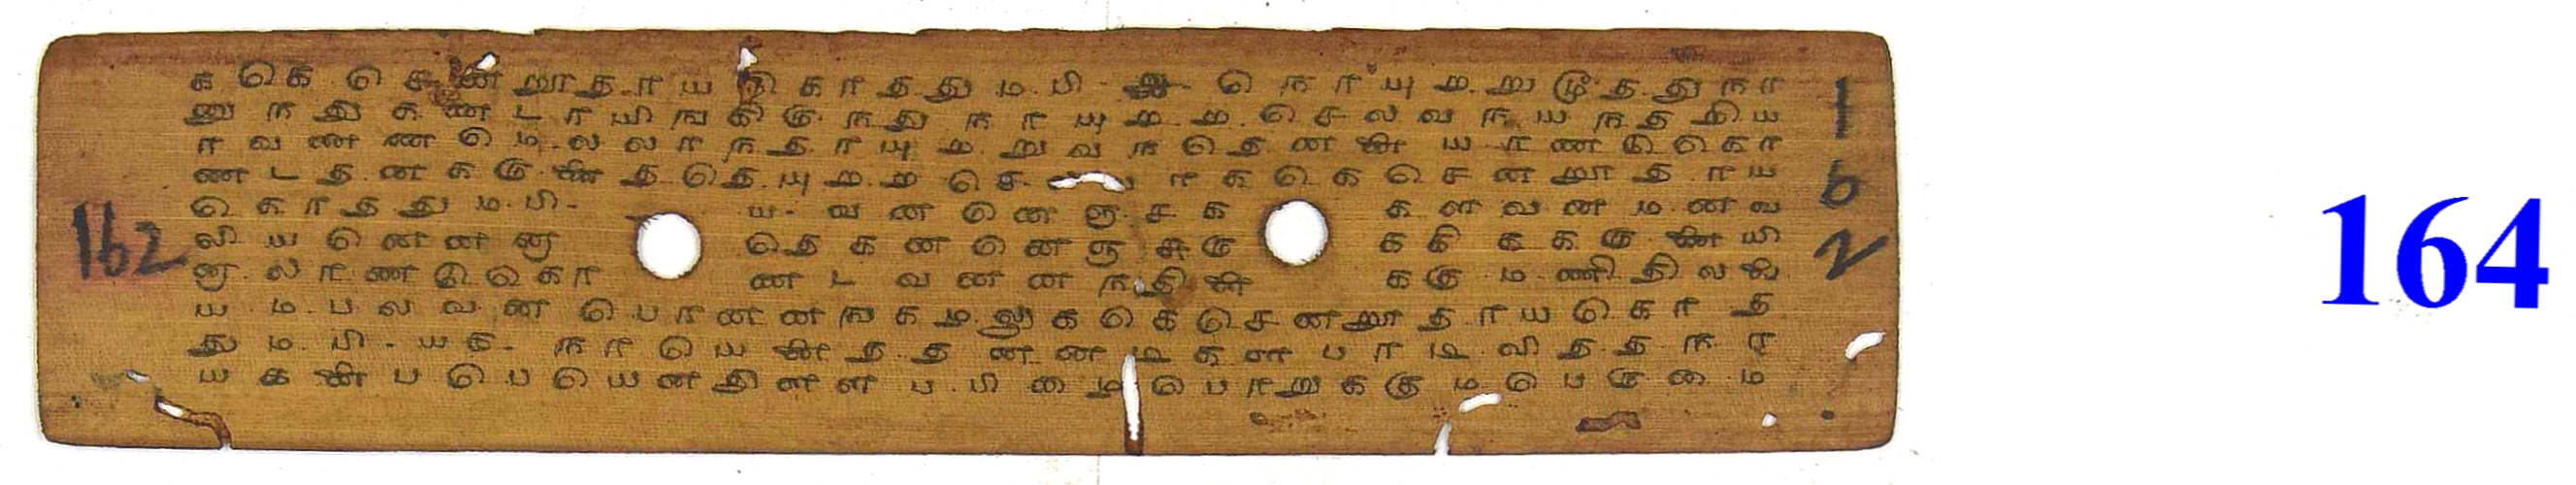 க கெ செ ன றூ த ரா ய கொ த து ம பி - நொ யு ம று மூ த து நா
னு ந து க ண டா யி ங கி ரு ந து நா யு ம ம செ ல வ ந ய ந த றி ய
ா வ ண ண மெ ல லா ந தா யு ம று வ ந தெ ன யா ண டு கொ
ண ட த ன க கு த தெ யு ம ம செ ா க கெ செ ன றூ தா ய
கொ த து ம பி - ய - வ ன னெ ஞ ச க க ள வ ன ம ன வ
லி ய னெ ன னு தெ க ன னெ ஞ சு கு க கி க க கு யி
னு லா ண டு கொ ண ட வ ன ன ந தி க கு ம ணி தி ல
ய ம ப ல வ ன பொ ன ன ங க ழ லு க கெ செ ன றூ தா ய கொ த
து ம பி - ய ௬ - நா யெ த த ன ன டி க ள பா டி வி த த நா
ய க ப பெ பெ ய ன தி ன ள ப பி மை பொ று க கு ம பெ ரு மை ம
162
1
6
2
164